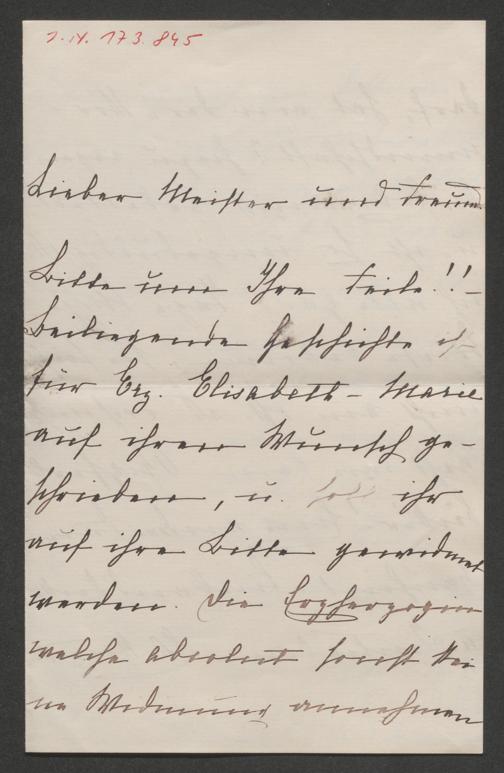 I.N. 173.845
Lieber Meister und Freund.
Bitte um Ihre Feile!! –
Beiliegende Geschichte ist
für Erz. Elisabeth - Marie
auf ihren Wunsch ge-
schrieben, u. soll ihr
auf ihre Bitte gewidmet
werden. Die Erzherzogin
welche absolut sonst kei
ne Widmung annehmen